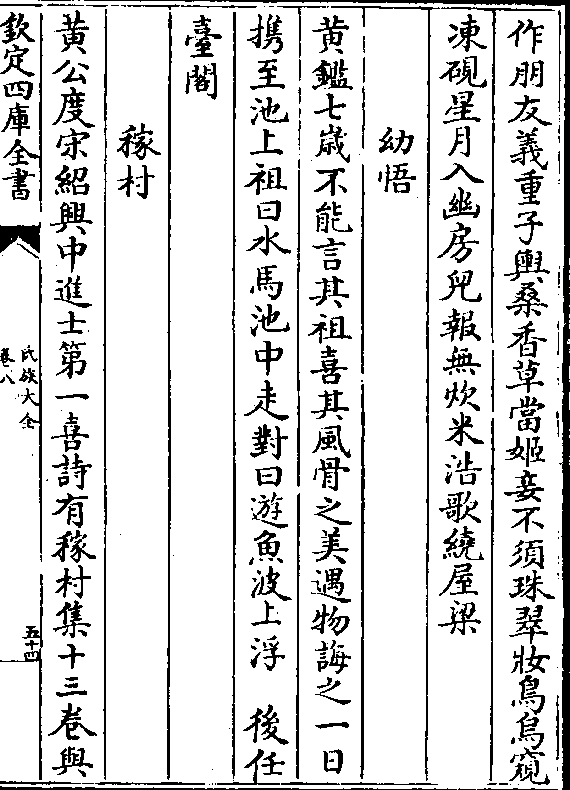 作朋友義重子輿桑香草當姬妾不須珠翠妝鳥烏窺
凍硯星月入幽房兒報無炊米浩歌繞屋梁
幼悟
黄鑑七歳不能言其祖喜其風骨之美遇物誨之一日
携至池上祖曰水馬池中走對曰遊魚波上浮　後任
臺閣
稼村
黄公度宋紹興中進士第一喜詩有稼村集十三卷與
欽定四庫全書
氏族大全
卷八
五十四